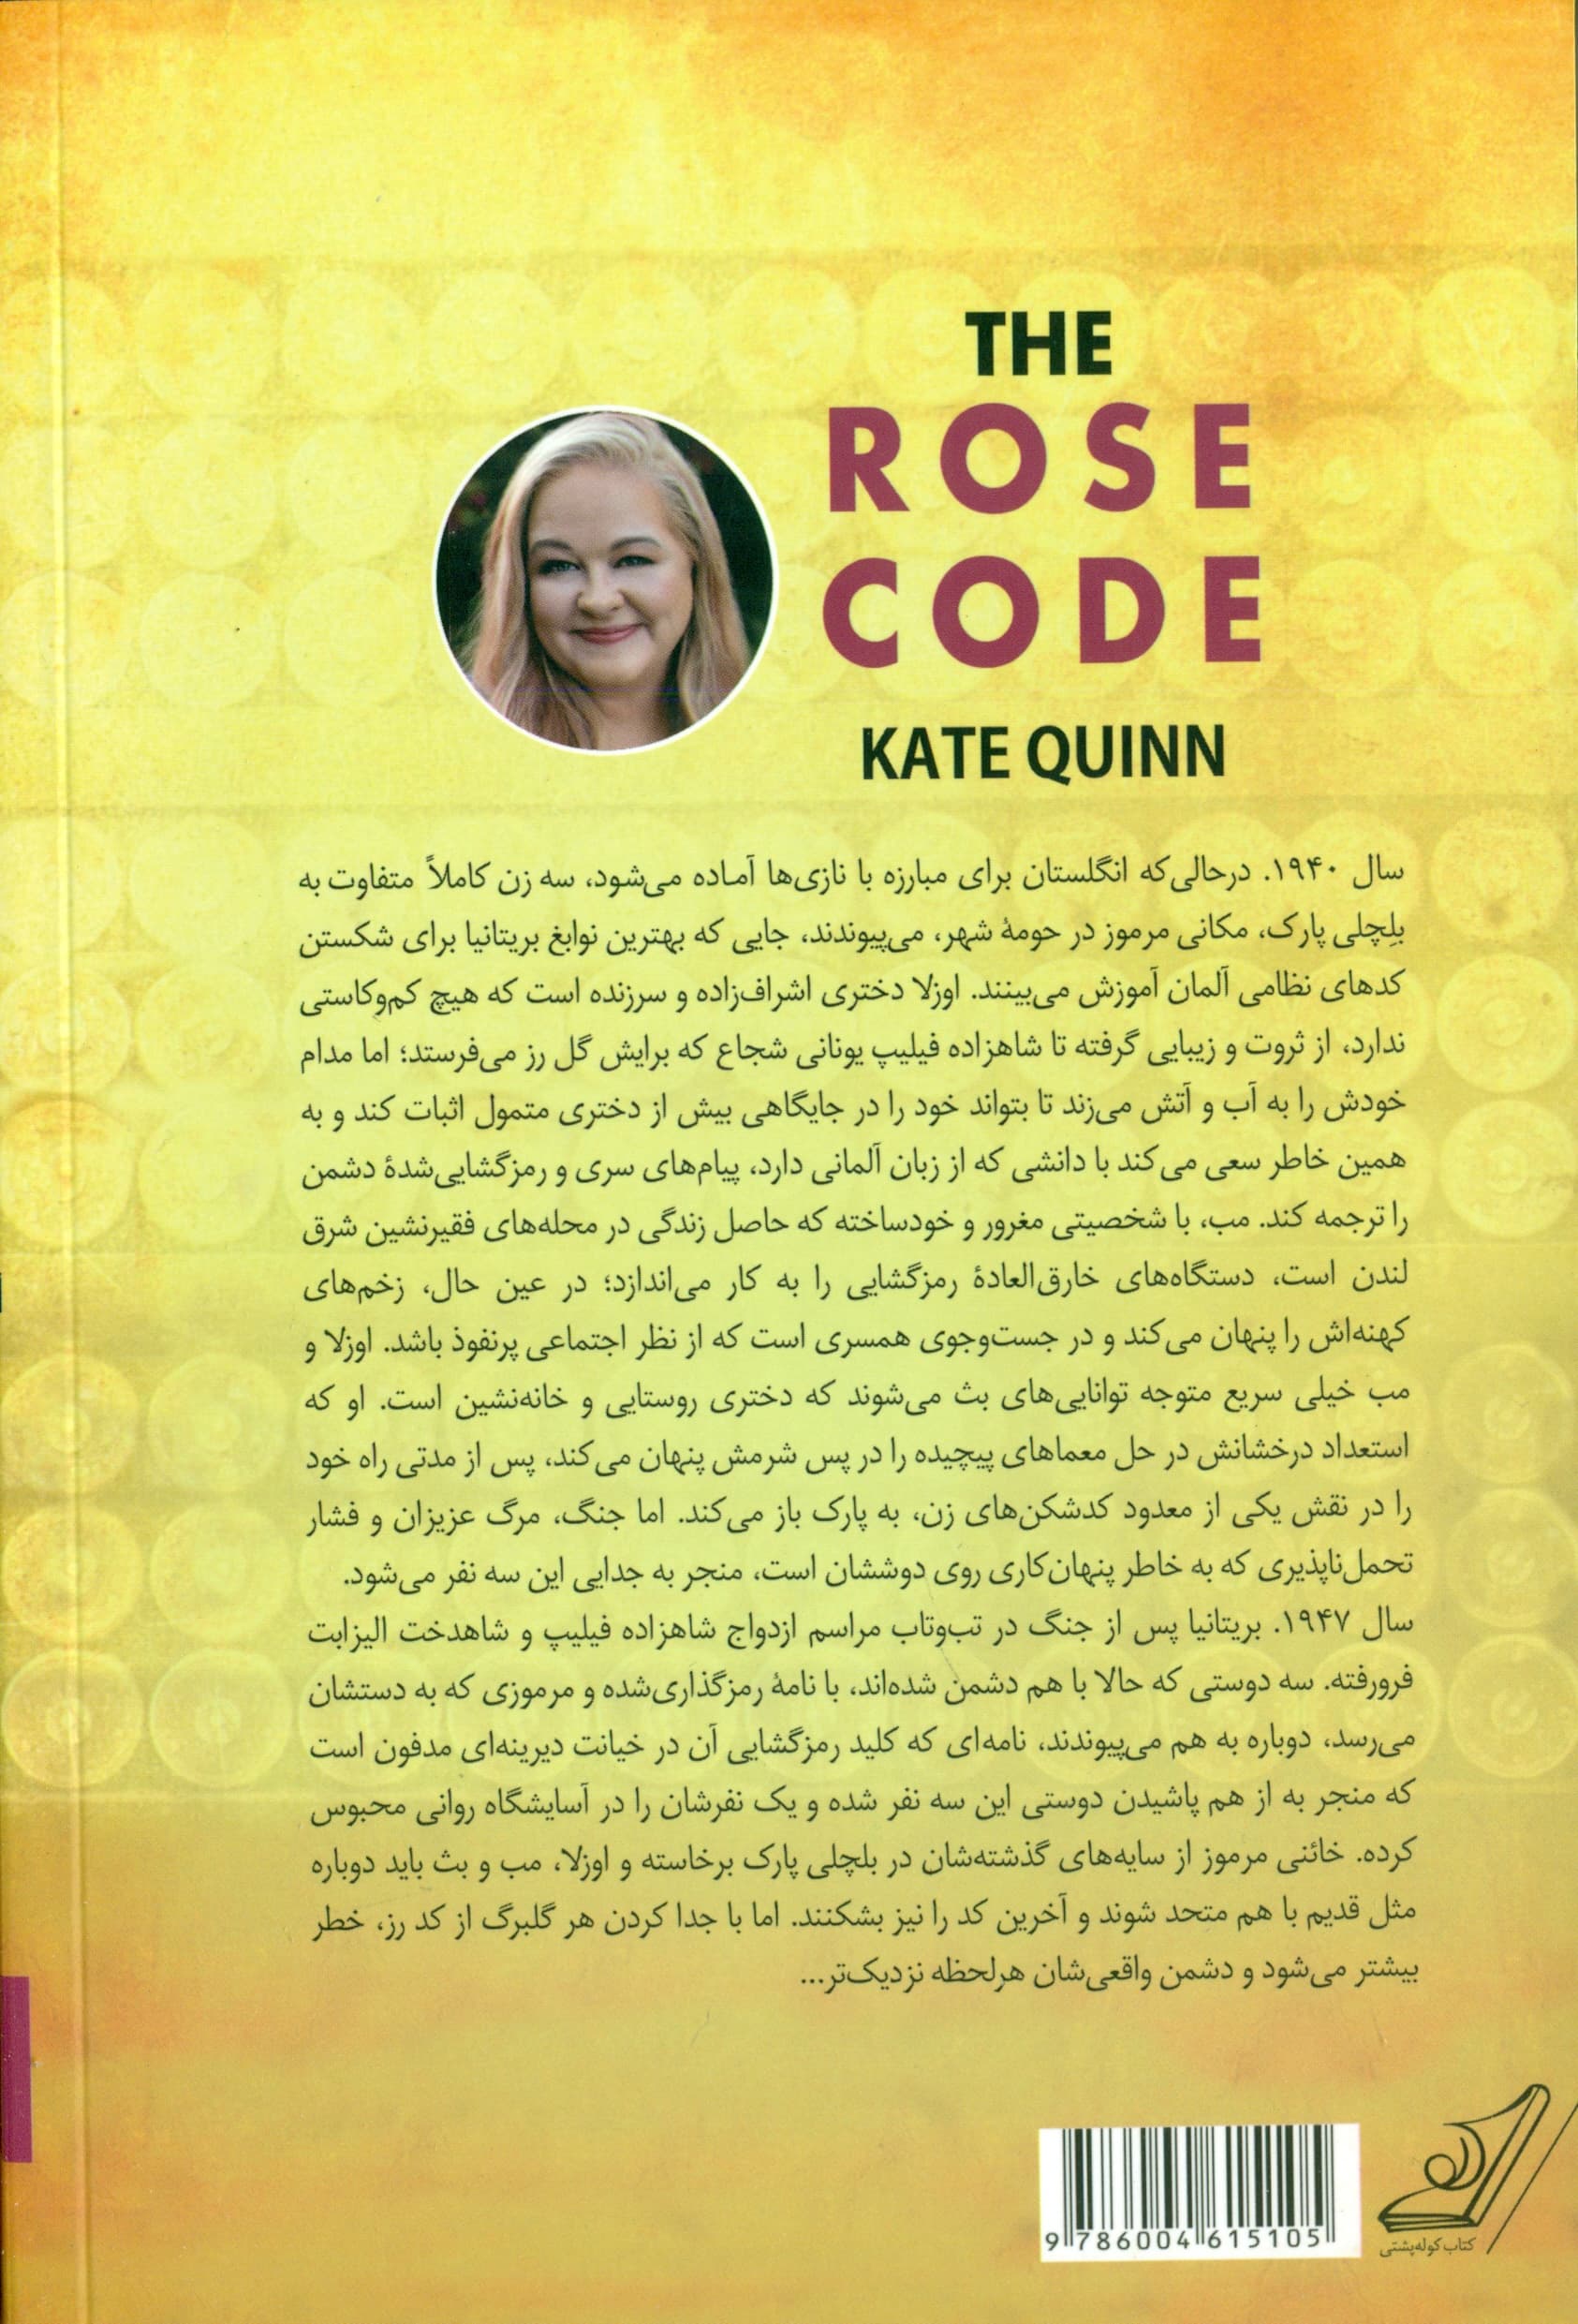 THE
ROSE
CODE
KATE QUINN
سال ۱۹۴۰. درحالی‌که انگلستان برای مبارزه با نازی‌ها آماده می‌شود، سه زن کاملاً متفاوت به
بلِچلی پارک، مکانی مرموز در حومهٔ شهر، می‌پیوندند، جایی که بهترین نوابغ بریتانیا برای شکستن
کدهای نظامی آلمان آموزش می‌بینند. اوزلا دختری اشراف‌زاده و سرزنده است که هیچ کم‌وکاستی
ندارد، از ثروت و زیبایی گرفته تا شاهزاده فیلیپ یونانی شجاع که برایش گل رز می‌فرستد؛ اما مدام
خودش را به آب و آتش می‌زند تا بتواند خود را در جایگاهی بیش از دختری متمول اثبات کند و به
همین خاطر سعی می‌کند با دانشی که از زبان آلمانی دارد، پیام‌های سری و رمزگشایی‌شدهٔ دشمن
را ترجمه کند. مب، با شخصیتی مغرور و خودساخته که حاصل زندگی در محله‌های فقیرنشین شرق
لندن است، دستگاه‌های خارق‌العادهٔ رمزگشایی را به کار می‌اندازد؛ در عین حال، زخم‌های
کهنه‌اش را پنهان می‌کند و در جست‌وجوی همسری است که از نظر اجتماعی پرنفوذ باشد. اوزلا و
مب خیلی سریع متوجه توانایی‌های بث می‌شوند که دختری روستایی و خانه‌نشین است. او که
استعداد درخشانش در حل معماهای پیچیده را در پس شرمش پنهان می‌کند، پس از مدتی راه خود
را در نقش یکی از معدود کدشکن‌های زن، به پارک باز می‌کند. اما جنگ، مرگ عزیزان و فشار
تحمل‌ناپذیری که به خاطر پنهان‌کاری روی دوششان است، منجر به جدایی این سه نفر می‌شود.
سال ۱۹۴۷. بریتانیا پس از جنگ در تب‌وتاب مراسم ازدواج شاهزاده فیلیپ و شاهدخت الیزابت
فرورفته. سه دوستی که حالا با هم دشمن شده‌اند، با نامهٔ رمزگذاری‌شده و مرموزی که به دستشان
می‌رسد، دوباره به هم می‌پیوندند، نامه‌ای که کلید رمزگشایی آن در خیانت دیرینه‌ای مدفون است
که منجر به از هم پاشیدن دوستی این سه نفر شده و یک نفرشان را در آسایشگاه روانی محبوس
کرده. خائنی مرموز از سایه‌های گذشته‌شان در بلچلی پارک برخاسته و اوزلا، مب و بث باید دوباره
مثل قدیم با هم متحد شوند و آخرین کد را نیز بشکنند. اما با جدا کردن هر گلبرگ از کد رز، خطر
بیشتر می‌شود و دشمن واقعی‌شان هرلحظه نزدیک‌تر...
9 786004 615105
کتاب کوله‌پشتی